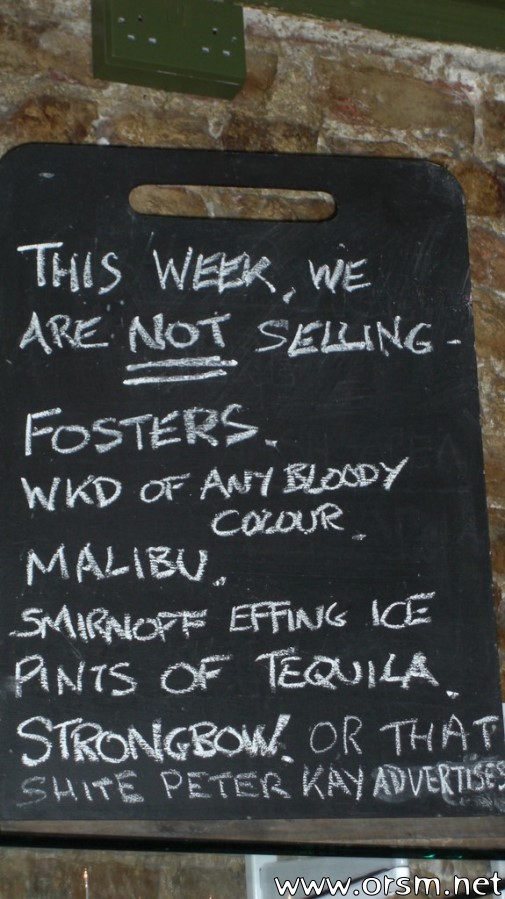 THIS WEEK, WE
ARE NOT SELLING -
FOSTERS.
WKD OF ANY BLOODY
COLOUR.
MALIBU.
SMIRNOFF EFFING ICE
PINTS OF TEQUILA.
STRONGBOW! OR THAT
SHITE PETER KAY ADVERTISES
www.orsm.net